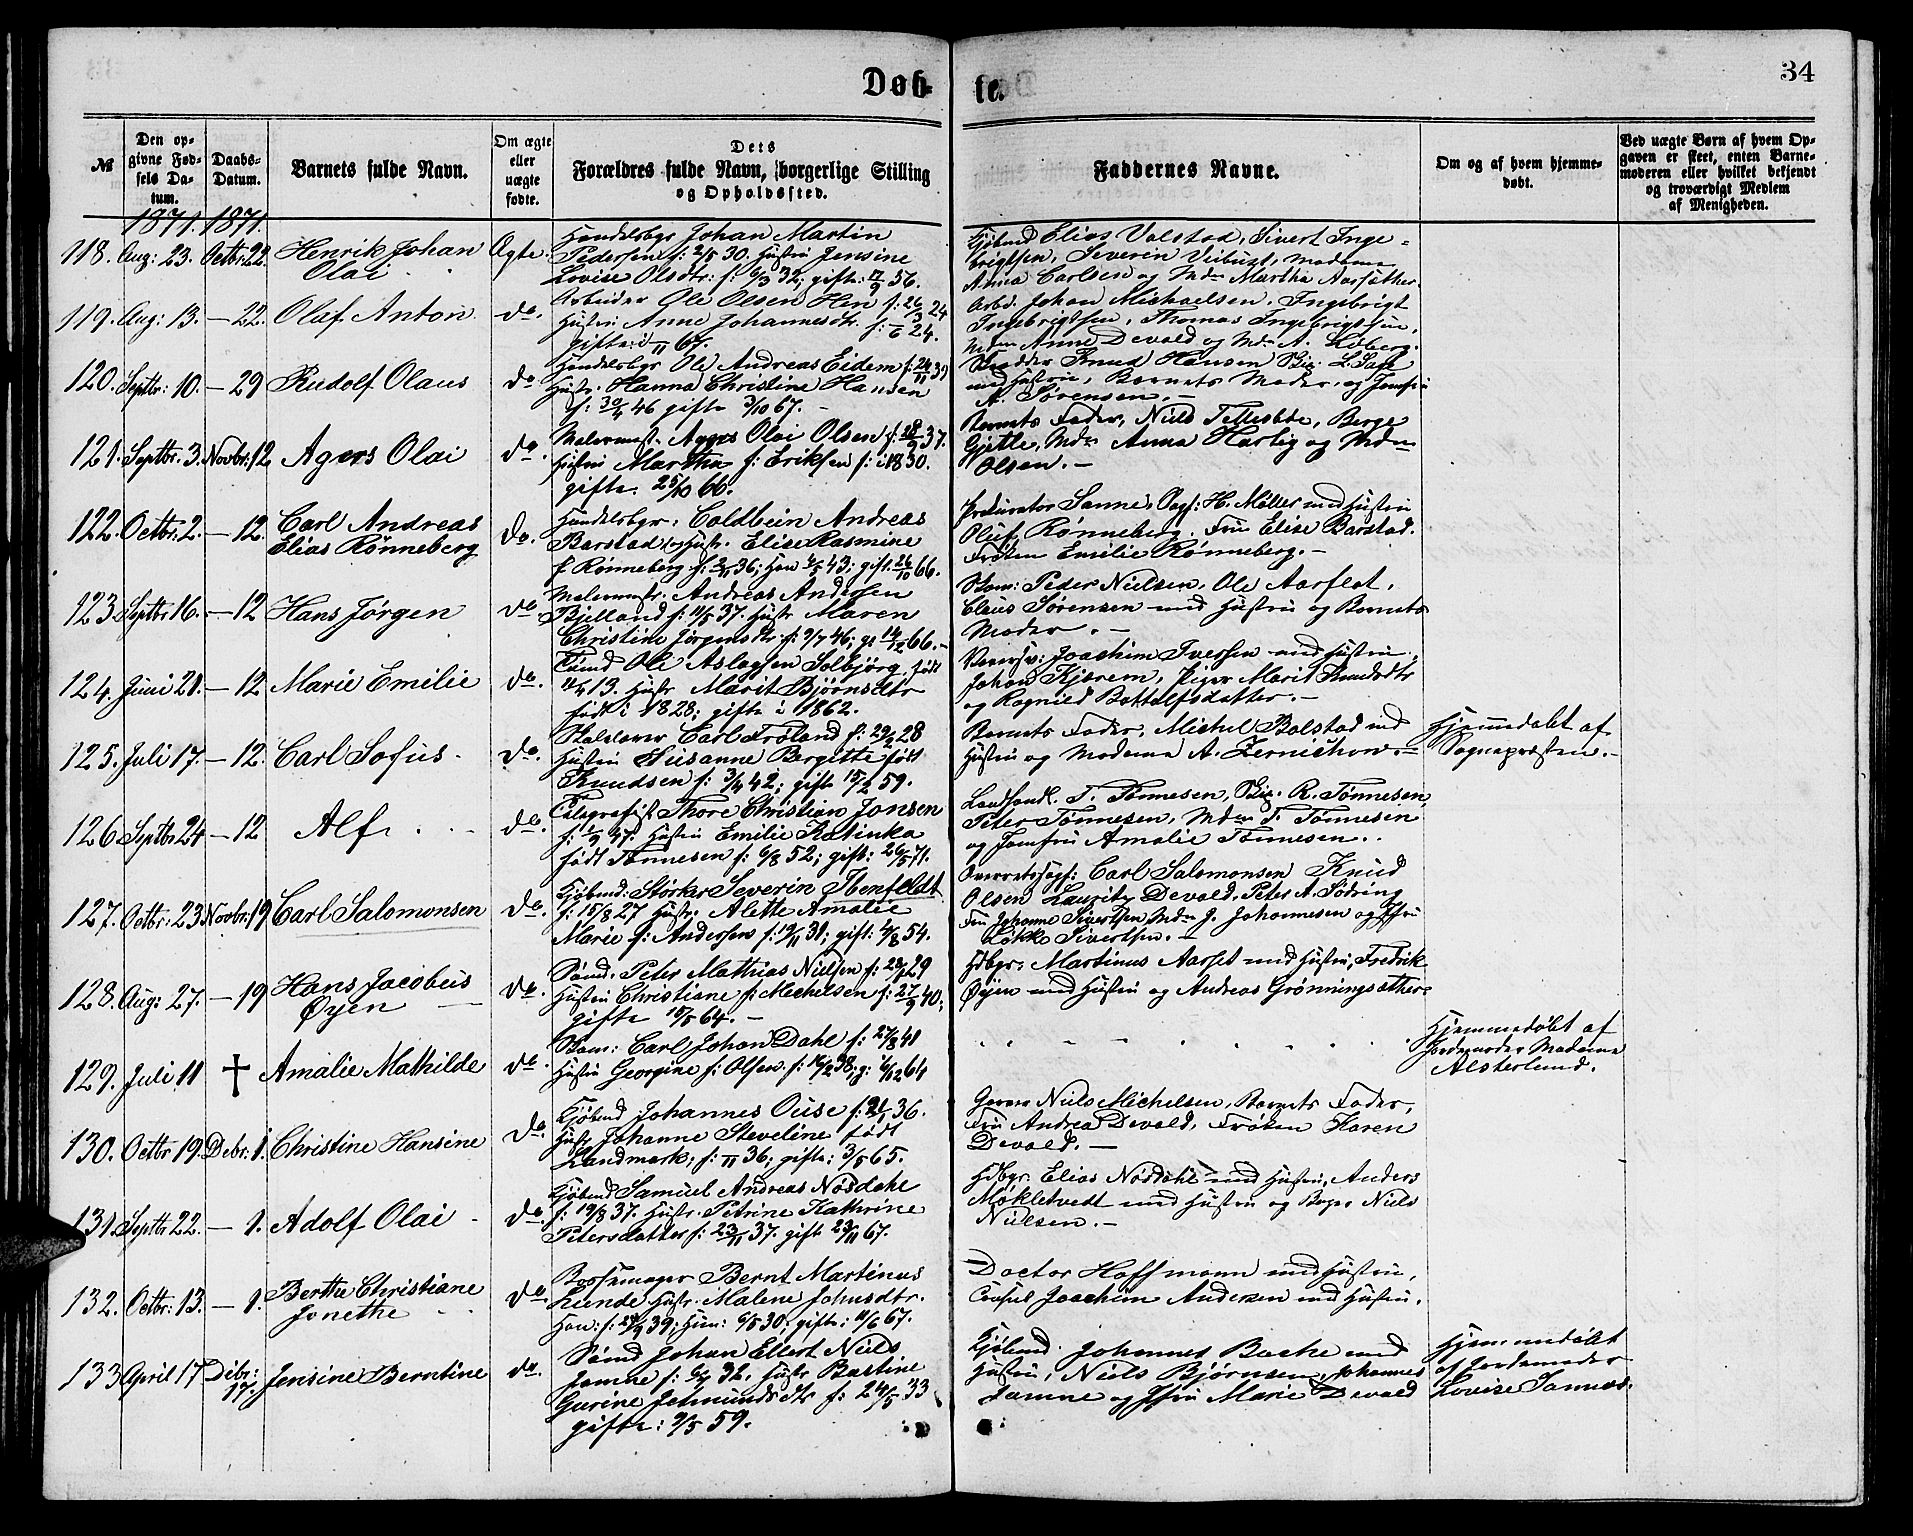 34
Døb-
te.
№
Den op-
givne Fød-
sels Da-
tum.
Daabs-
Datum.
Barnets fulde Navn.
Om ægte
eller
uægte
fødte.
Dets
Forældres fulde Navn, borgerlige Stilling
og Opholdssted.
Faddernes Navne.
Om og af hvem hjemme-
døbt.
Ved uægte Børn af hvem Op-
gaven er skeet, enten Barne-
moderen eller hvilket bekjendt
og troværdigt Medlem
af Menigheden.
1871. 1871.
118. Aug: 23. Octbr: 22. Henrik Johan
Olai
Ægte.
Handelsbgr Johan Martin
Pedersen f: 2/5 30. Hustru Jensine
Lovise Olsdtr: f: 6/3 32; gift: 17/9 56.
Kjøbmd Elias Valstad, Sivert Inge-
brigtsen, Severin Veibust, Madame
Anna Carlsen og Mdm Martha Aarsæther.
119. Aug: 13. — 22. Olaf Anton
do.
Arbeider Ole Olsen Hen f: 26/3 24
Hustru Anne Johannesdtr. f: 24.
gifte i 67.
Arbd. Johan Michaelsen, Ingebrigt
Ingebrigtsen, Thomas Ingebrigtsen,
Mdm Anne Devold og Mdm A. Løberg.
120. Septbr: 10. — 29 Rudolf Olaus
do
Handelsbgr Ole Andreas Eidem f: 24/11 39
Hustr. Hanna Christine Hansen
f: 30/4 46 gifte 3/10 67.
Knud Hansen
med Hustru, Barnets Moder, og Jomfru
A. Sørensen.
121. Septbr. 3. Novbr: 12 Agers Olai
do.
Malermest. Agers Olai Olsen f: 28/9 37.
Hustru Martha f: Eriksen f: i 1830.
gifte. 25/10 66.
Barnets Fader, Niels Berge
Gjetle, Mdm Anna Hartig og Mdm
Olsen.
122. Octbr. 2. — 12. Carl Andreas
Elias Rønneberg
do.
Handelsbgr. Coldbein Andreas
Barstad og Hustr. Elise Rasmine
f Rønneberg f: 36; Hun 43; gift. 26/10 66.
Prokurator Sanne, Sagf: H. Møller med Hustru
Oluf Rønneberg. Fru Elise Barstad.
Frøken Emilie Rønneberg.
123. Septbr 16. — 12 Hans Jørgen
do
Malermstr. Andreas Andersen
Bjelland f: 11/5 37. Hustr Maren
Christine Jørgensdtr f: 9/7 46; g: 66.
Skom: Peder Nielsen, Ole Aarflot,
Claus Sørensen med Hustru og Barnets
Moder.
124. Juni 21. — 12 Marie Emilie
do.
Ole Aslagsen Solbjørg, født
11/4 13. Hustr Marit Bjørnsdtr
født i 1828; gifte i 1862.
Joachim Iversen med Hustru,
Johan Kjærem, Piger Marit Knudsdtr
og Ragnild Bottolfsdatter.
125. Juli 17. — 12. Carl Sofus
do.
Carl Frøland f: 22/2 28
Hustru Susanne Bergitte født
Knudsen f: 3/4 42; gifte 15/2 59.
Barnets Fader, Michel Bolstad med
Hustru og Madame A. Zernichow.
Hjemmedøbt af
Sognepræsten.
126 Septbr 24 — 12 Alf
do.
Telegrafist Thore Christian Jonsen
f: 47. Hustru Emilie Katinka
født Tønnesen f: 6/8 52; gift: 26/5 71.
Landhandl. T. Tønnesen, R. Tønnesen,
Peter Tønnesen, Mdm T. Tønnesen
og Jomfru Amalie Tønnesen.
127. Octbr: 23. Novbr: 19 Carl Salomonsen
do.
Kjøbmd: Størker Severin Ibenfeldt
f: 15/8 27 Hustr. Alette Amalie
Marie f: Andersen f: 19/11 31; gift: 4/8 54.
Overretssagf: Carl Salomonsen Knud
Olsen Lauritz Devold, Peter A. Sødring
Fru Johanne Sivertsen Mdm J. Johannesen og Jfru
Løkke Sivertsen.
128. Aug: 27. — 19 Hans Jacobus
Øyen
do.
Sømd. Peter Mathias Nielsen f: 29
Hustru Christiane f: Michelsen f: 27/9 40;
gifte 15/5 64.
Hdbgr: Martinus Aarset med Hustru, Fredrik
Øyen med Hustru og Andreas Grønningsæther
129. Juli 11 † Amalie Mathilde
do.
Skom: Carl Johan Dahl f: 27/8 41
Hustru Georgine f: Olsen f: 16/2 38; g: 64
Hjemmedøbt af
Jordemoder Madame
Alsterlund.
130. Octbr 19. Debr: 1. Christine Hansine
do
Kjøbmd Johannes Ouse f: 36.
Hustr Johanne Steveline født
Landmark; f: 36; gifte: 3/5 65.
Garver Niels Michelsen, Barnets Fader,
Fru Andrea Devold, Frøken Karen
Devold.
131. Septbr 22. — 1. Adolf Olai
do.
Kjøbmd Samuel Andreas Nosdahl
f: 19/8 37. Hustr. Petrine Kathrine
Petersdatter f: 23/11 37. gift 23/11 67.
Hdbgr. Elias Nosdahl med Hustru, Anders
Møkletvedt med Hustru og Bager Niels
Nielsen.
132. Octbr: 13. — 1. Berthe Christiane
Jonethe
do
Bøssemager Bernt Martinus
Lunde Hustr. Malene Johnsdtr.
Han: f: 39; Hun: 6/5 30; gifte: 11/6 67.
Doctor Hoffmann med Hustru,
Consul Joachim Andersen med Hustru.
133 April 17 Debr: 17. Jensine Berntine
do.
Sømd Johan Ellert Niels
Jamne f: 32, Hustr Bastine
Gurine Jetmundsdtr f: 24/5 33
gifte: 9/5 59.
Kjøbmd. Johannes Backe med
Hustru, Niels Bjørnsen, Johannes
Jamne og Jfru Marie Devold
Hjemmedøbt
af Jordemoder
Lovise